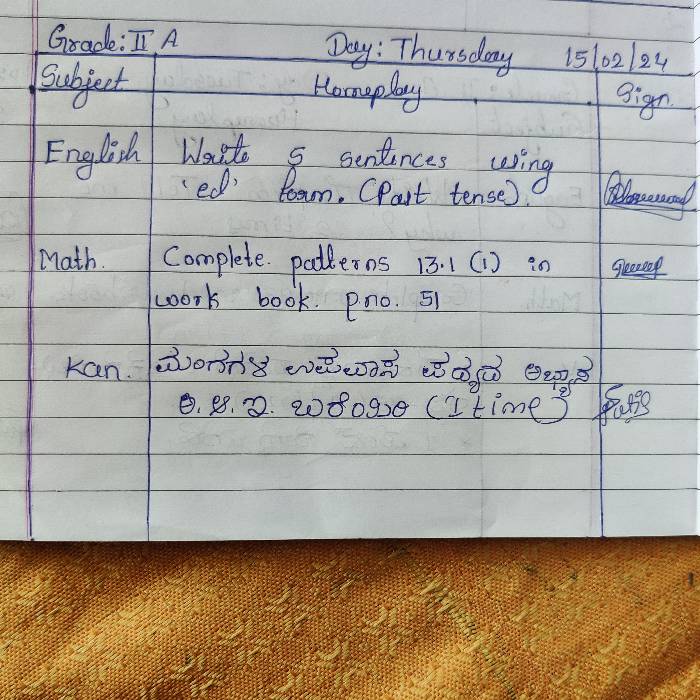 Grade: II A Day: Thursday 15/02/24
Subject Homeplay Sign.
English Write 5 sentences using
'ed' form. (Past tense).
Math. Complete patterns 13.1 (1) in
work book. p.no. 51
Kan. ಮಂಗಗಳ ಉಪವಾಸ ಪದ್ಯದ ಅಭ್ಯಾಸ
ಅ. ಆ. ಇ. ಬರೆಯಿರಿ (1 time)